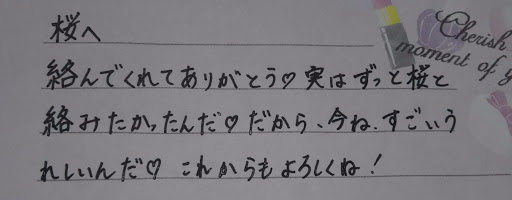 桜へ
Cherish
moment of y
絡んでくれてありがとう♡実はずっと桜と
絡みたかったんだ♡だから、今ね、すごいう
れしいんだ♡ これからもよろしくね!